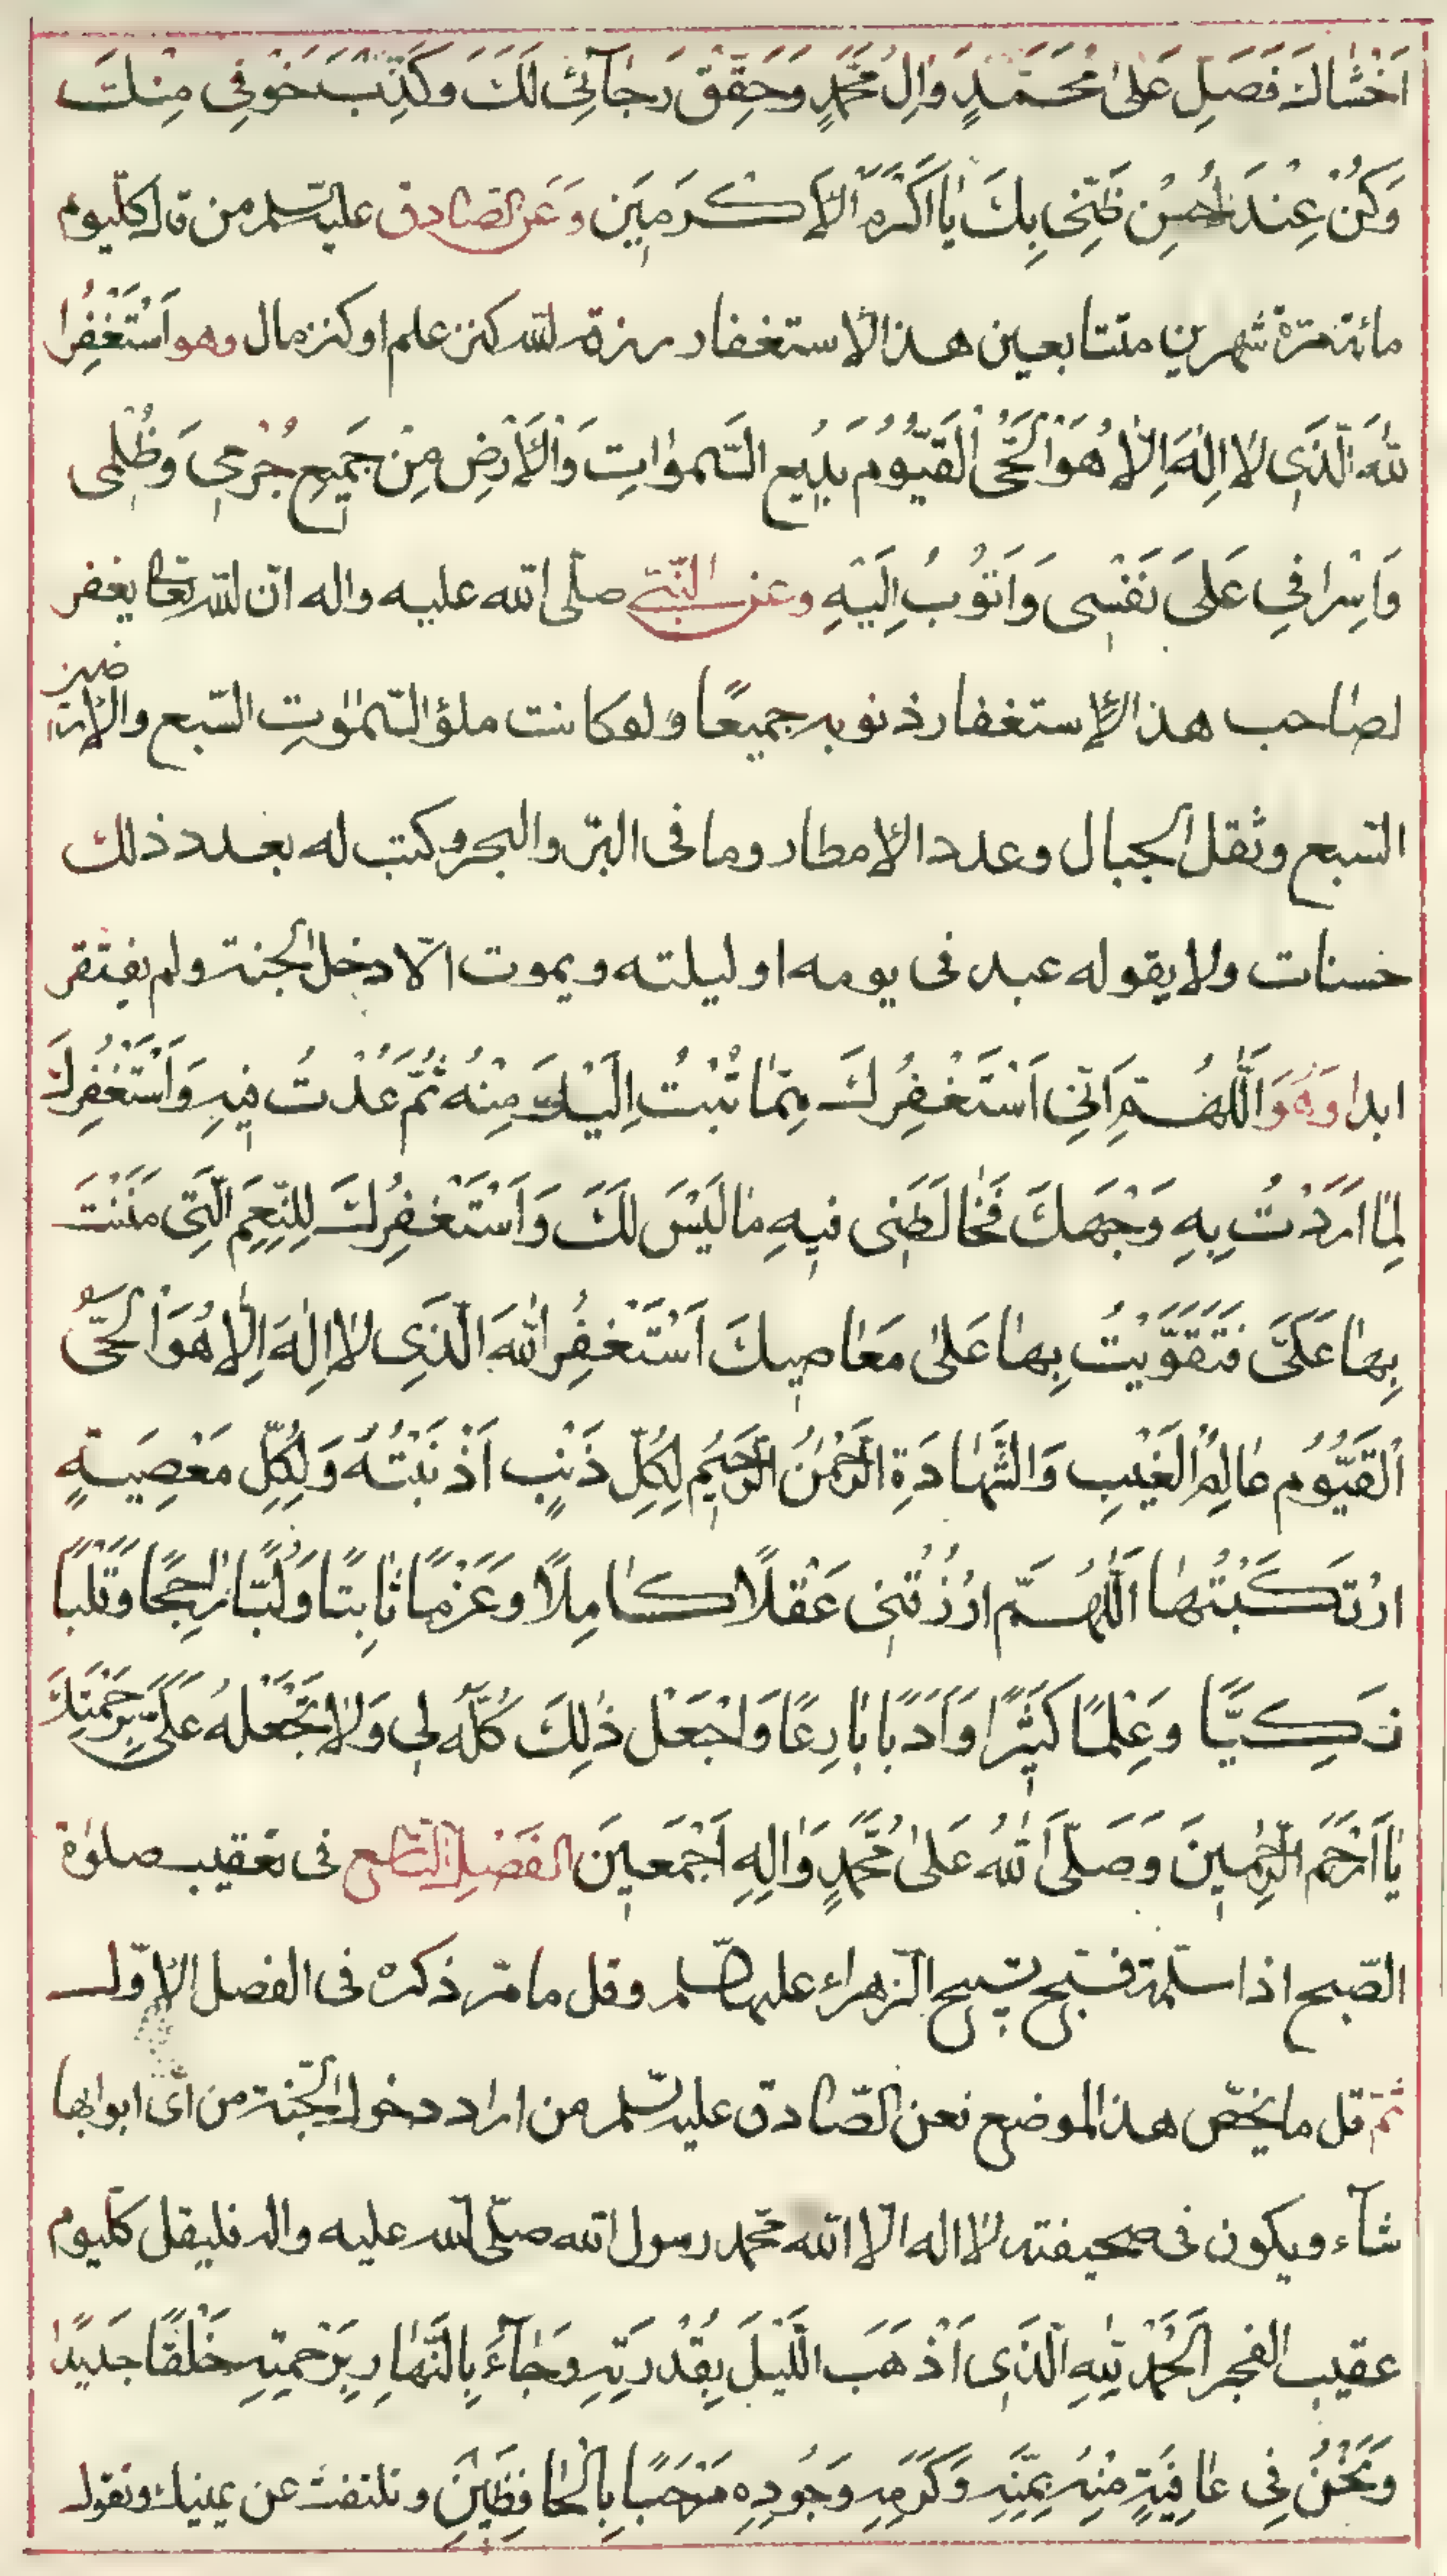 اَخْشَاكَ فَصَلِّ عَلىٰ مُحَمَّدٍ وَاٰلِ مُحَمَّدٍ وَحَقِّقْ رَجٰآئِى لَكَ وَكَذِّبْ خَوْفِى مِنْكَ
وَكُنْ عِنْدَ اَحْسَنِ ظَنِّى بِكَ يٰا اَكْرَمَ الْاَكْرَمِينَ وَعَنِ الصّادق عليه السلم من قال كلّيوم
مائة مرّة شهرين متتابعين هذا الاستغفار رزقه الله كنز علم او كنز مال وهو اَسْتَغْفِرُ ا
للهَ الَّذِى لاٰ اِلٰهَ اِلّاٰ هُوَ الْحَىُّ الْقَيُّومُ بَدِيعُ السَّمٰوٰاتِ وَالْاَرْضِ مِنْ جَمِيعِ جُرْمِى وَظُلْمِى
وَاِسْرٰافِى عَلىٰ نَفْسِى وَاَتُوبُ اِلَيْهِ وعن النّبىّ صلّى الله عليه واله انّ الله تعا يغفر
لصاحب هذا الإستغفار ذنوبه جميعًا ولو كانت ملؤ السّمٰوٰت السّبع والارضين
السّبع وثقل الجبال وعدد الامطار وما فى البرّ والبحر وكتب له بعدد ذلك
حسنات ولا يقوله عبد فى يومه او ليلته ويموت الّا دخل الجنة ولم يفتقر
ابدا وَهُوَ اَللّٰهُمَّ اِنِّى اَسْتَغْفِرُكَ مِمّٰا تُبْتُ اِلَيْكَ مِنْهُ ثُمَّ عُدْتُ فِيهِ وَاَسْتَغْفِرُكَ
لِمٰا اَرَدْتُ بِهِ وَجْهَكَ فَخٰالَطَنِى فِيهِ مٰا لَيْسَ لَكَ وَاَسْتَغْفِرُكَ لِلنِّعَمِ الَّتِى مَنَنْتَ
بِهٰا عَلَىَّ فَتَقَوَّيْتُ بِهٰا عَلىٰ مَعٰاصِيكَ اَسْتَغْفِرُ اللهَ الَّذِى لاٰ اِلٰهَ اِلّاٰ هُوَ الْحَىُّ
الْقَيُّومُ عٰالِمُ الْغَيْبِ وَالشَّهٰادَةِ الرَّحْمٰنُ الرَّحِيمُ لِكُلِّ ذَنْبٍ اَذْنَبْتُهُ وَلِكُلِّ مَعْصِيَةٍ
ارْتَكَبْتُهٰا اَللّٰهُمَّ ارْزُقْنِى عَقْلًا كٰامِلًا وَعَزْمًا ثٰابِتًا وَلُبًّا رٰاجِحًا وَقَلْبًا
زَكِيًّا وَعِلْمًا كَثِيرًا وَاَدَبًا بٰارِعًا وَاجْعَلْ ذٰلِكَ كُلَّهُ لِى وَلاٰ تَجْعَلْهُ عَلَىَّ بِرَحْمَتِكَ
يٰا اَرْحَمَ الرّٰحِمِينَ وَصَلَّى اللهُ عَلىٰ مُحَمَّدٍ وَاٰلِهِ اَجْمَعِينَ الفَصْلُ التّاسع فى تعقيب صلوٰة
الصّبح اذا سلّمت فسبّح تسبيح الزهراء عليها السلم وقل ما مرّ ذكره فى الفصل الاوّل
ثمّ قل ما يخصّ هذا الموضع فعن الصّادق عليه السّلم من اراد دخول الجنة من اىّ ابوابها
شآء ويكون فى صحيفته لا اله الا الله محمّد رسول الله صلّى الله عليه واله فليقل كلّيوم
عقيب الفجر اَلْحَمْدُ لِلّٰهِ الَّذِى اَذْهَبَ اللَّيْلَ بِقُدْرَتِهِ وَجٰآءَ بِالنَّهٰارِ بِرَحْمَتِهِ خَلْقًا جَدِيدًا
وَنَحْنُ فِى عٰافِيَةٍ مِنْهُ بِمَنِّهِ وَكَرَمِهِ وَجُودِهِ مَرْحَبًا بِالْحٰافِظَيْنِ وتلتفت عن يمينك وتقول